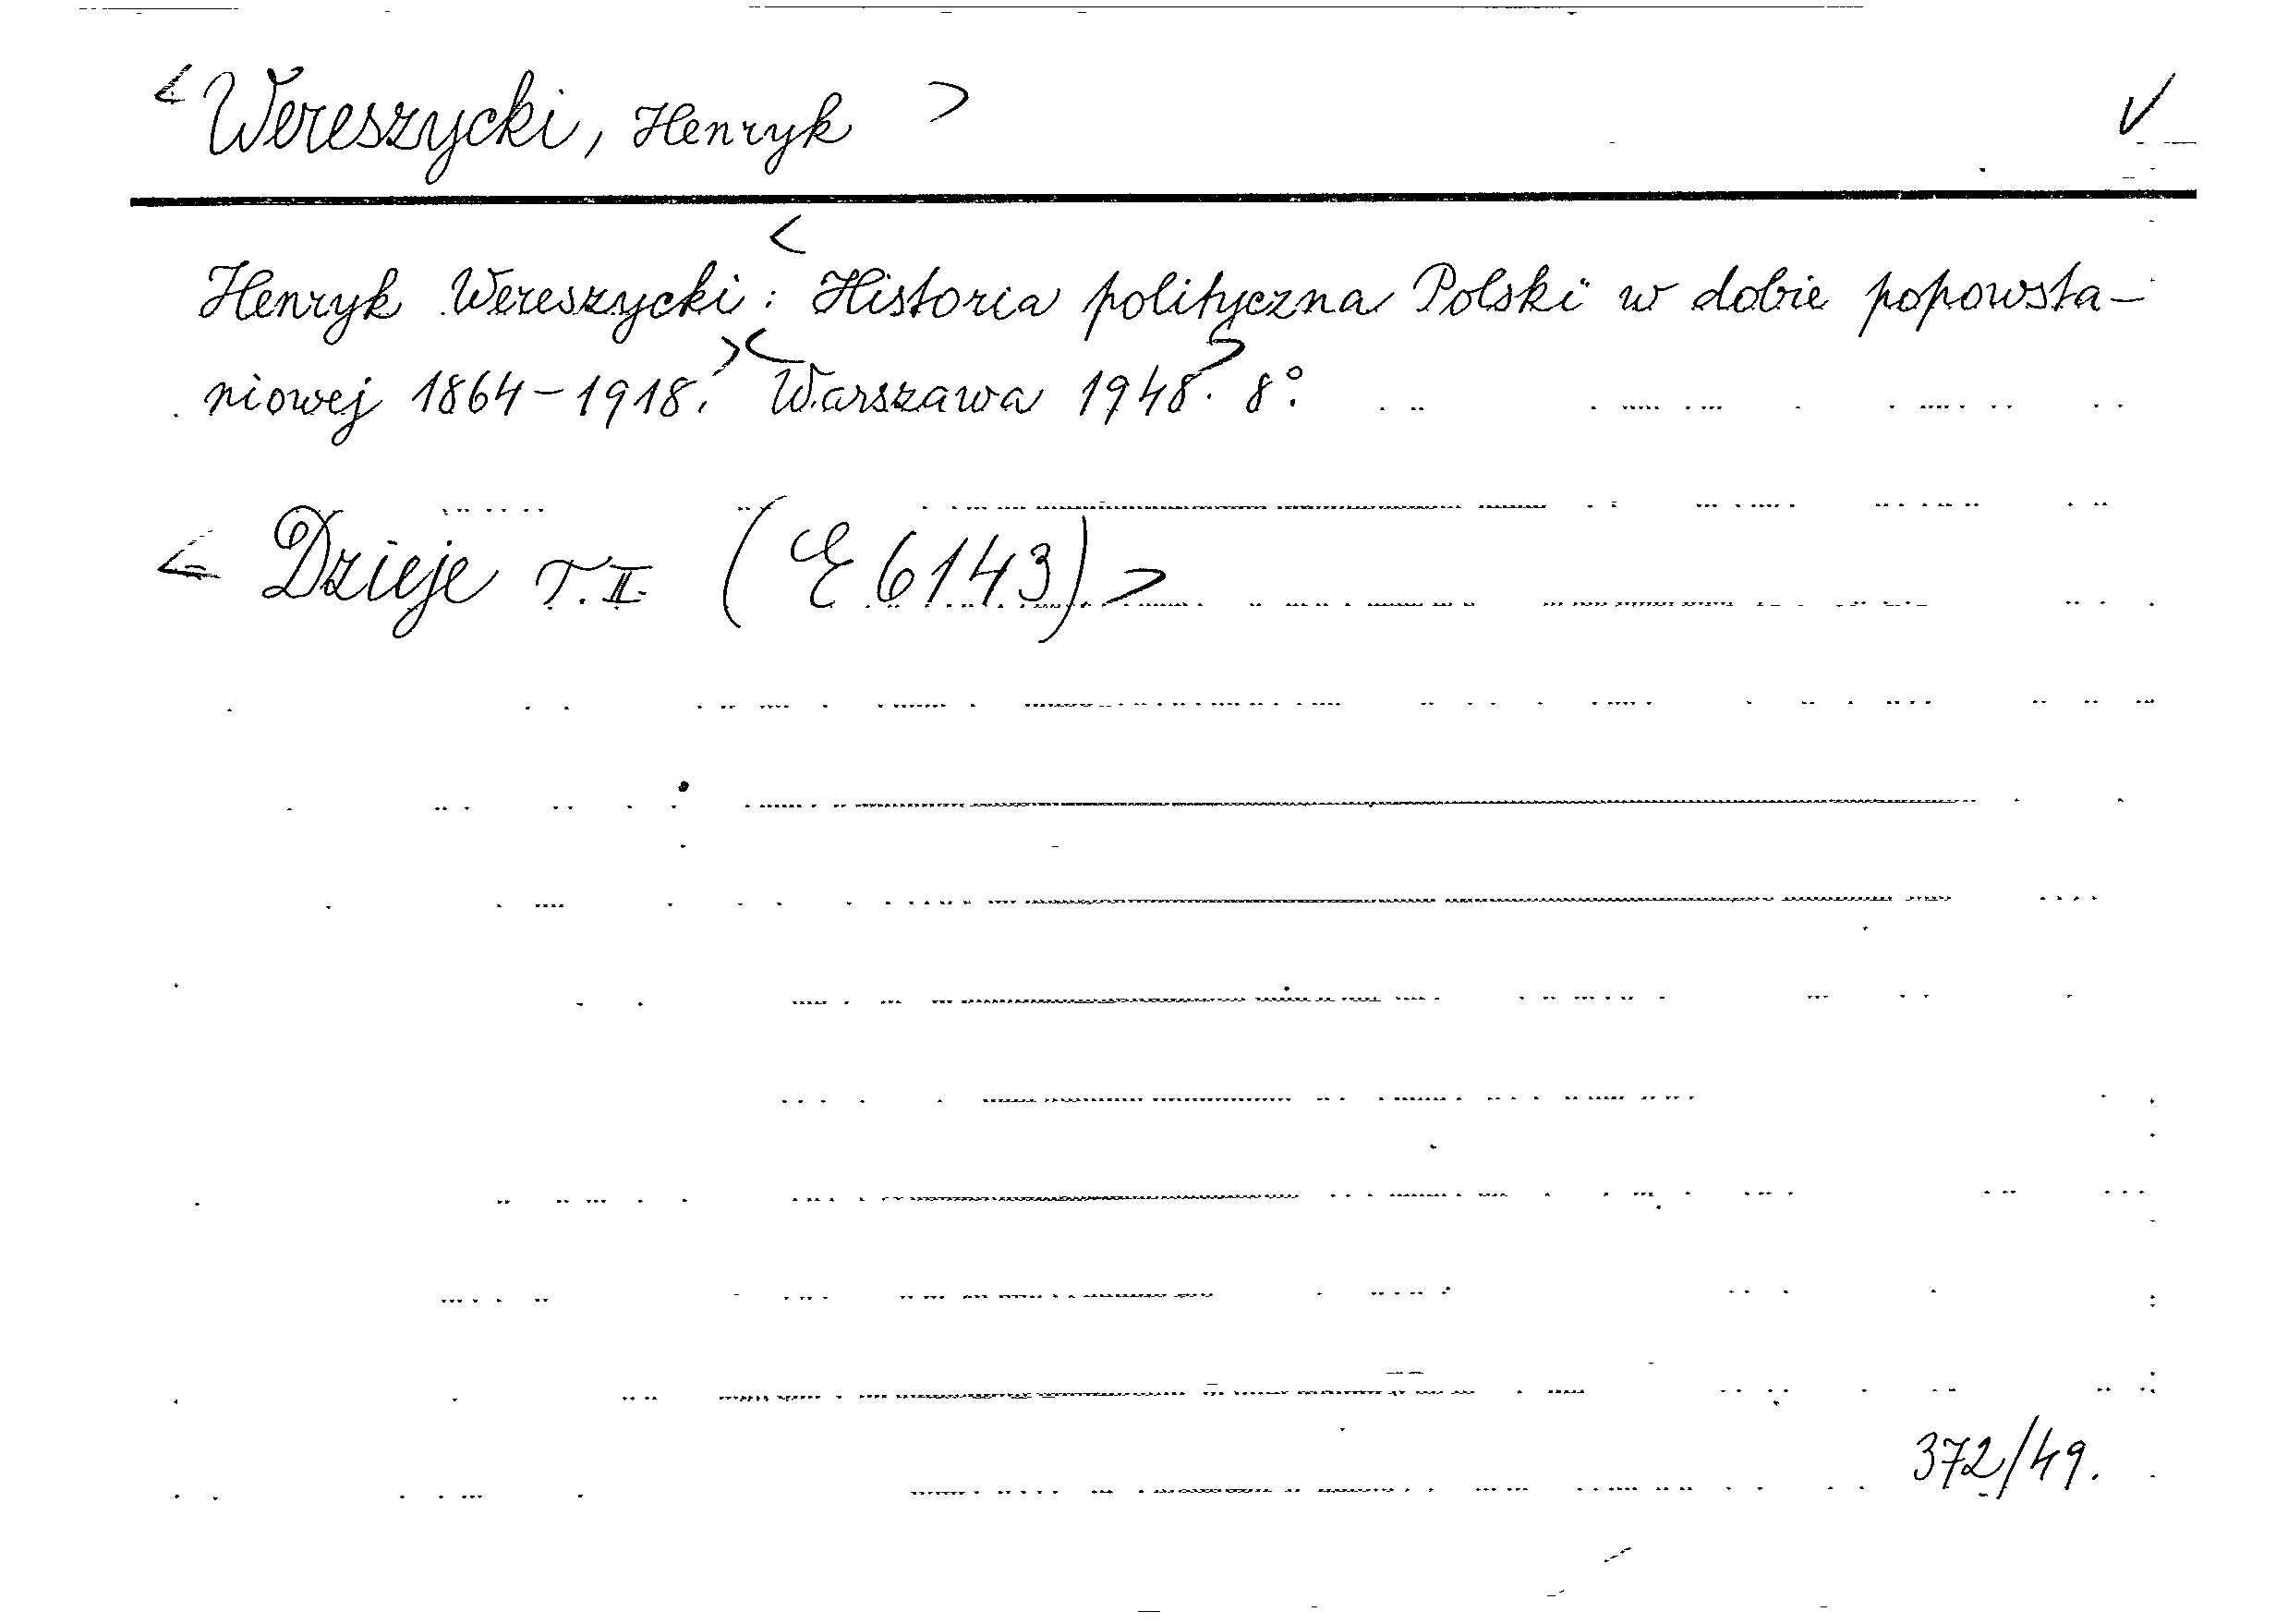 < Wereszycki, Henryk > ✓
Henryk Wereszycki: < Historia polityczna Polski w dobie popowsta-
niowej 1864-1918. >< Warszawa 1948. > 8°.
< Dzieje T. II. (E 6143) >
372/49.